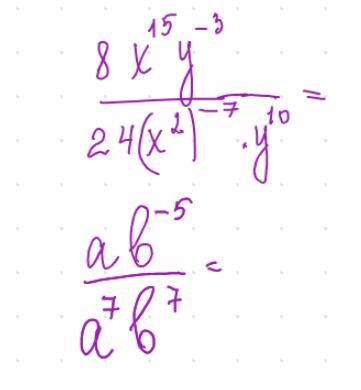 8 x^15 y^-3
24(x^2)^-7 · y^10 =
a b^-5
a^7 b^7 =